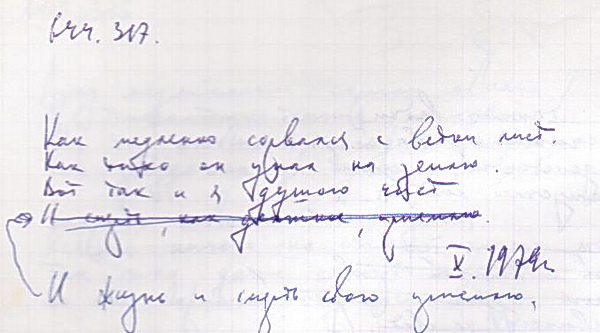 144. 317.
Как медленно сорвался с ветки лист.
Как тихо он упал на землю.
Вот так и я душою чист
И смерть, как должное, приемлю.
X. 1979г.
И жизнь и смерть свою приемлю,